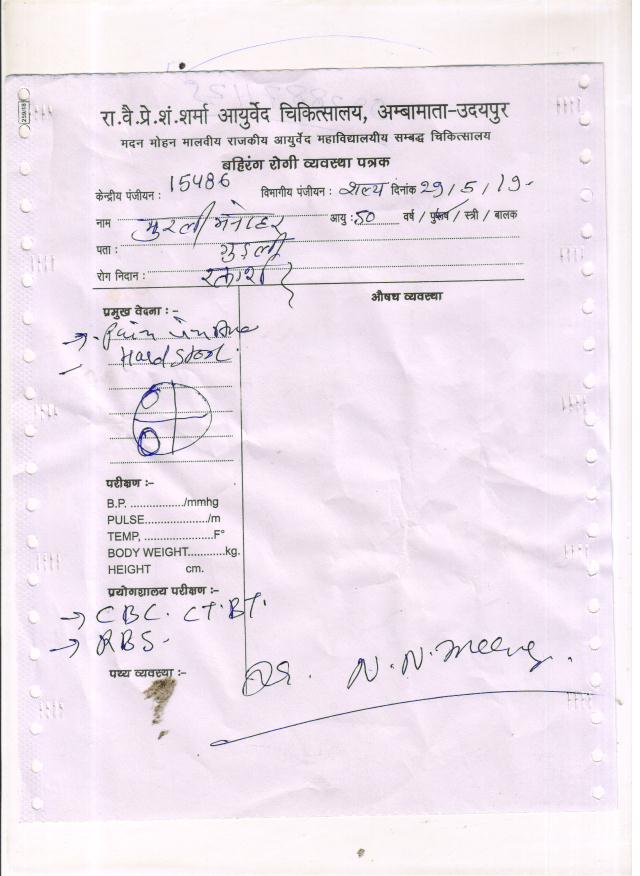 रा.वै.प्रे.शं.शर्मा आयुर्वेद चिकित्सालय, अम्बामाता-उदयपुर
मदन मोहन मालवीय राजकीय आयुर्वेद महाविद्यालयीय सम्बद्ध चिकित्सालय
बहिरंग रोगी व्यवस्था पत्रक
केन्द्रीय पंजीयन : 15486 विभागीय पंजीयन : शल्य दिनांक 29/5/19
नाम मुरली मनोहर आयु : 50 वर्ष / पुरूष / स्त्री / बालक
पता :
रोग निदान : रक्तार्श
प्रमुख वेदना :-
औषध व्यवस्था
→ Pain in
Hard stool.
परीक्षण :-
B.P. ............../mmhg
PULSE...................../m
TEMP, .....................F°
BODY WEIGHT...........kg.
HEIGHT cm.
प्रयोगशालय परीक्षण :-
→ CBC. CT. BT.
→ RBS -
पथ्य व्यवस्था :-
Dr. N. N. Meena.